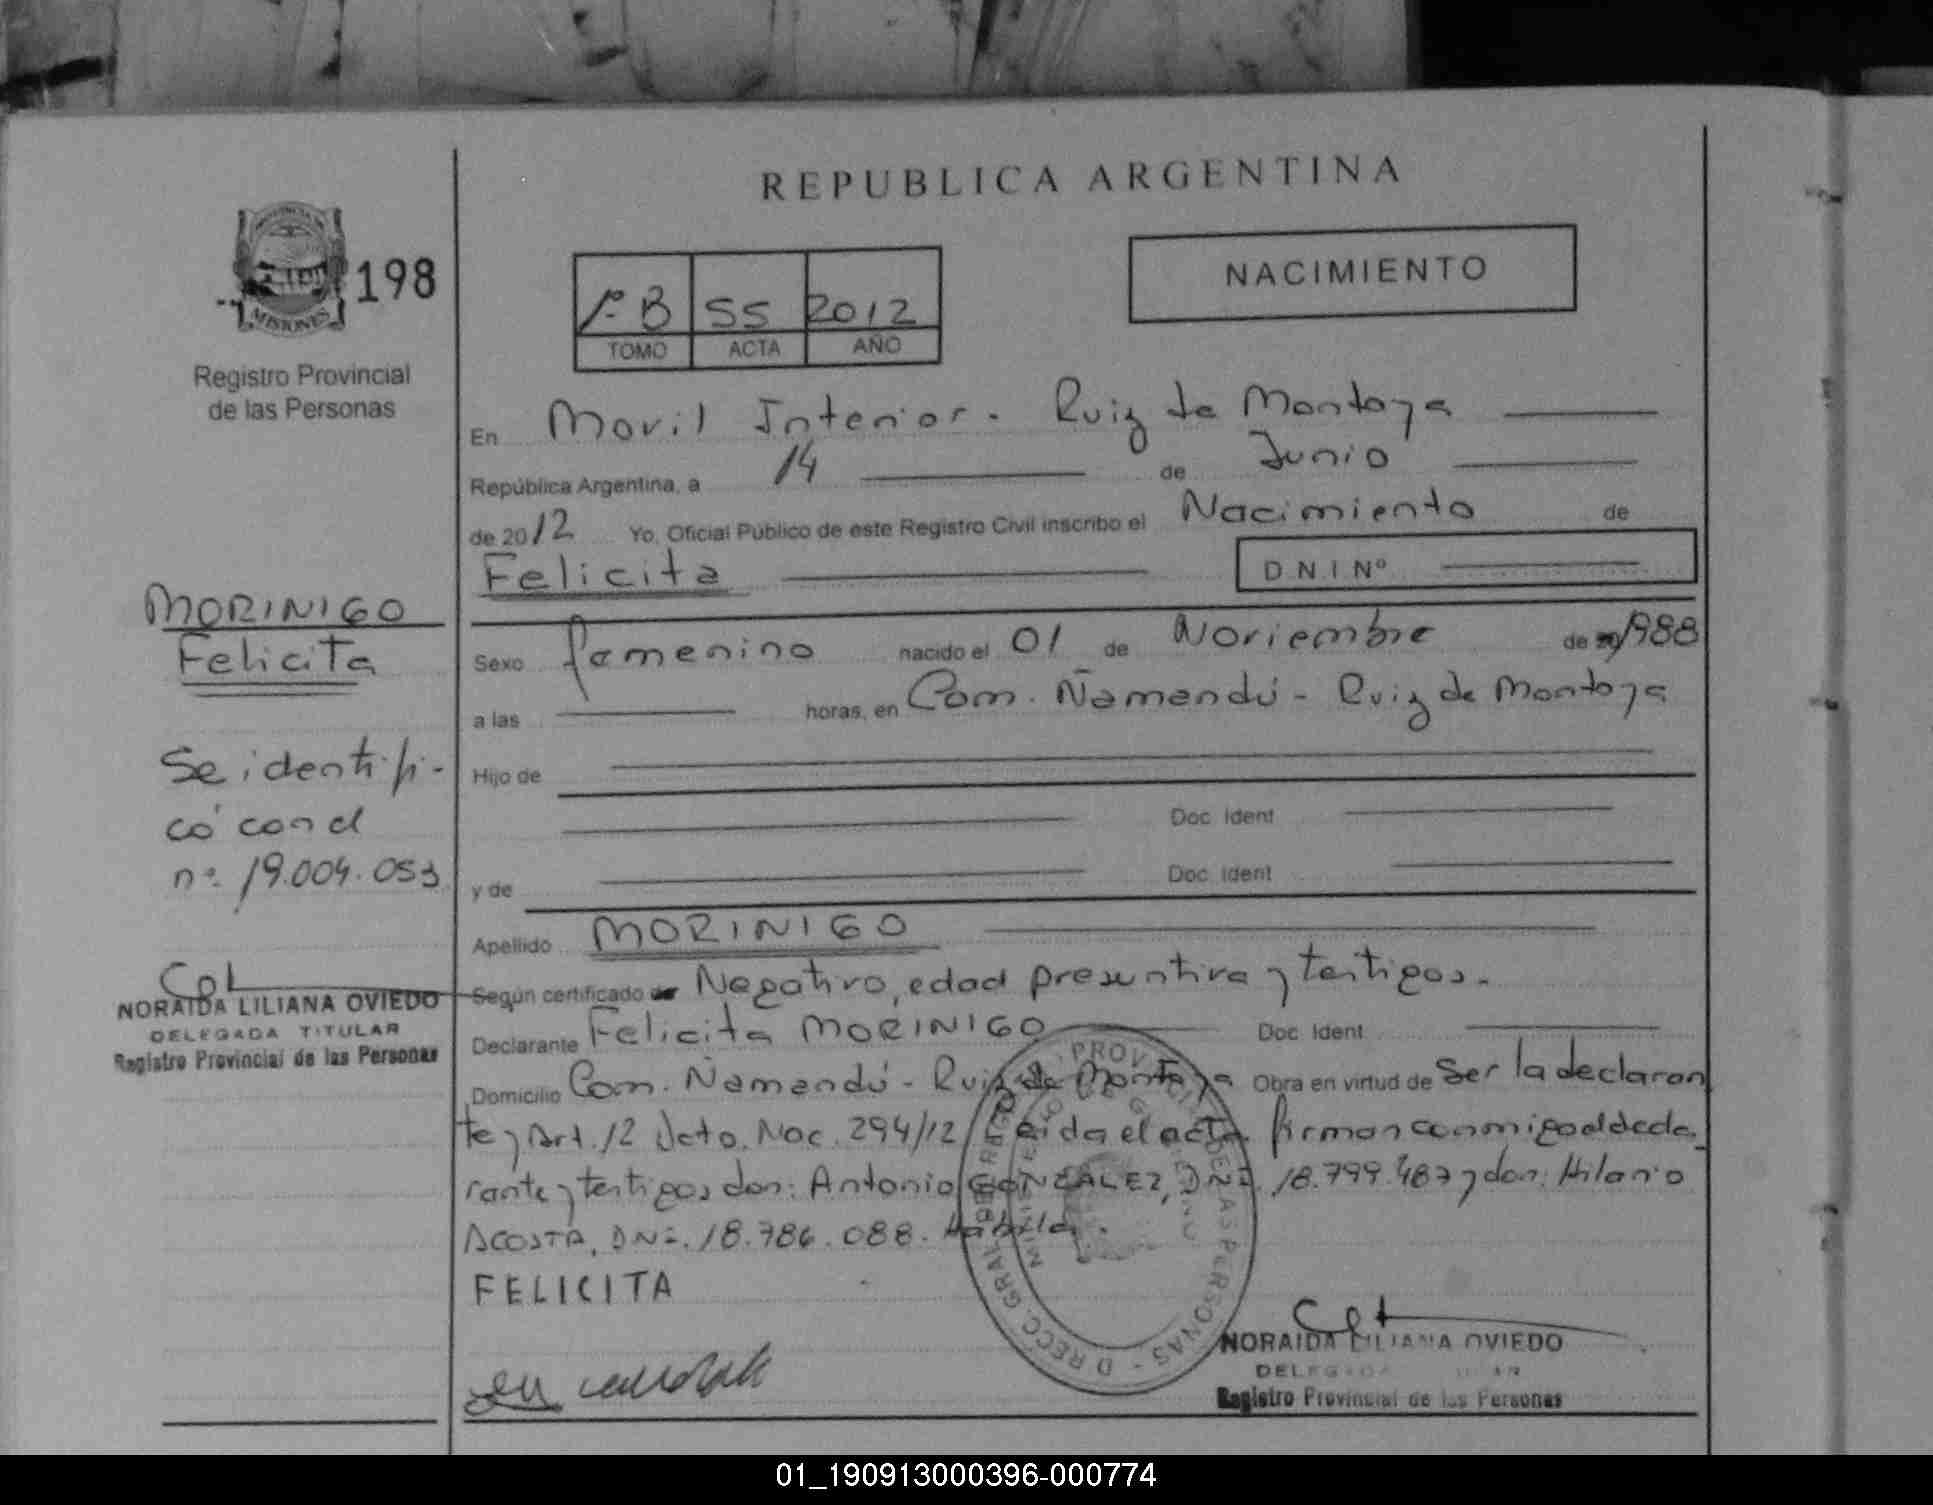 REPUBLICA ARGENTINA
198
MISIONES
Registro Provincial
de las Personas
1º B 55 2012
TOMO ACTA AÑO
NACIMIENTO
En Movil Interior - Ruiz de Montoya
República Argentina, a 14 de Junio
de 2012 Yo, Oficial Público de este Registro Civil inscribo el Nacimiento de
Felicita D.N.I Nº
MORINIGO
Felicita
Sexo femenino nacido el 01 de Noviembre de 1988
a las horas, en Com. Ñamandú - Ruiz de Montoya
Se identifi-
có con el
nº. 19.004.053
Hijo de
Doc. Ident
y de Doc. Ident
Apellido MORINIGO
Según certificado de Negativo, edad presuntiva y testigos.
NORAIDA LILIANA OVIEDO
DELEGADA TITULAR
Registro Provincial de las Personas
Declarante Felicita MORINIGO Doc. Ident
Domicilio Com. Ñamandú - Ruiz de Montoya Obra en virtud de Ser la declaran
te y Art. 12 Dcto. Nac. 294/12 Leida el acta firman conmigo el decla-
rante y testigos don: Antonio GONZALEZ, DNI. 18.799.487 y don: Hilario
ACOSTA, DNI. 18.786.088.
FELICITA
NORAIDA LILIANA OVIEDO
DELEGADA TITULAR
Registro Provincial de las Personas
01_190913000396-000774